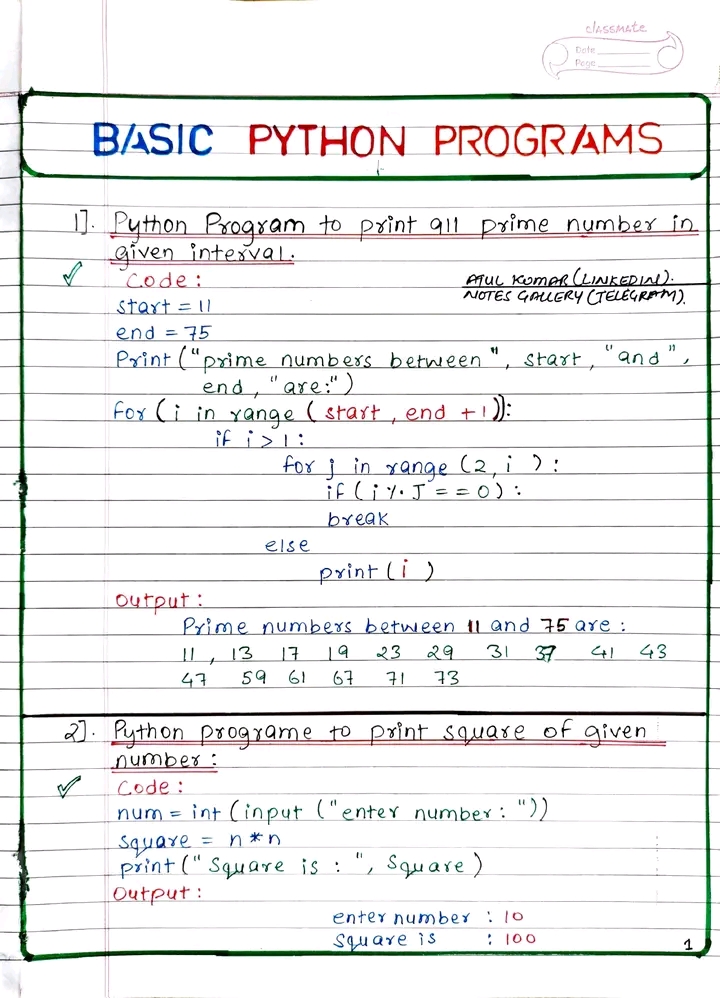 classmate
Date
Page
BASIC PYTHON PROGRAMS
1]. Python Program to print all prime number in
given interval.
Code :
ATUL KUMAR (LINKEDIN).
NOTES GALLERY (TELEGRAM).
start = 11
end = 75
Print ("prime numbers between", start, "and",
end, "are:")
for (i in range (start, end +1)):
if i > 1 :
for j in range (2, i ) :
if ( i % J = = 0) :
break
else
print ( i )
Output :
Prime numbers between 11 and 75 are :
11 , 13 17 19 23 29 31 37 41 43
47 59 61 67 71 73
2]. Python programe to print square of given
number :
Code :
num = int (input ("enter number : "))
square = n * n
print (" Square is : ", Square )
Output :
enter number : 10
Square is : 100
1